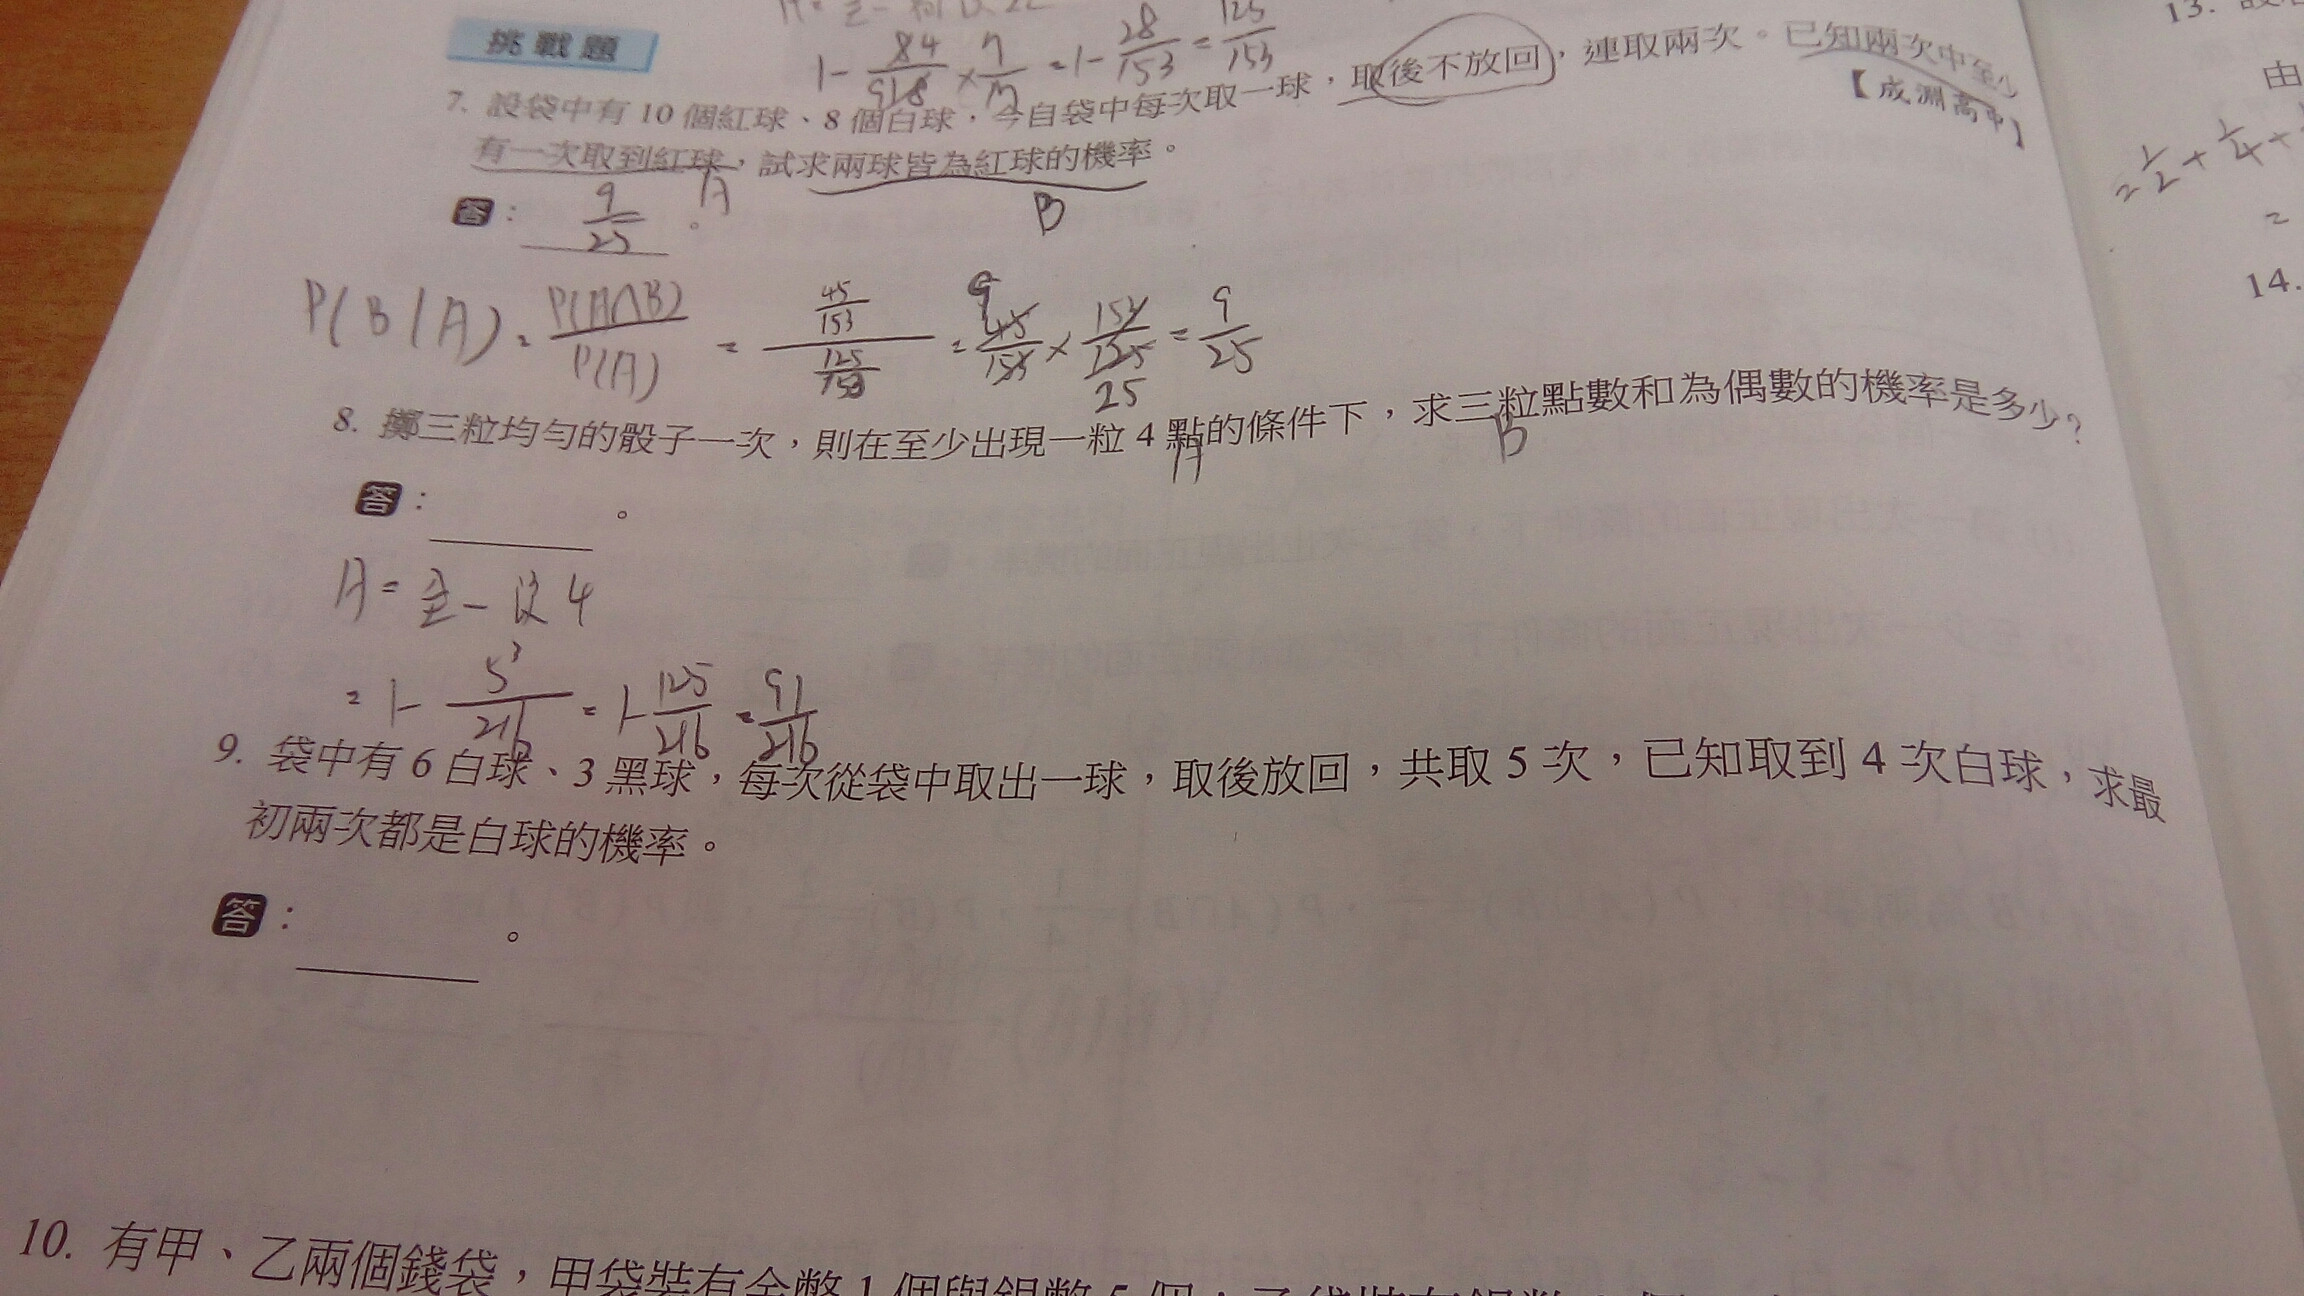 挑戰題
1 - 84/918 × 7/17 = 1 - 28/153 = 125/153
7. 設袋中有 10 個紅球、8 個白球,今自袋中每次取一球,取後不放回,連取兩次。已知兩次中至少
有一次取到紅球,試求兩球皆為紅球的機率。
【成淵高中】
A
B
答: 9/25 。
P(B|A) = P(A∩B)/P(A) = (45/153)/(125/153) = 45/153 × 153/125 = 9/25
9
25
8. 擲三粒均勻的骰子一次,則在至少出現一粒 4 點的條件下,求三粒點數和為偶數的機率是多少?
A
B
答: 。
A = 全 - 沒 4
= 1 - 5³/216 = 1 - 125/216 = 91/216
9. 袋中有 6 白球、3 黑球,每次從袋中取出一球,取後放回,共取 5 次,已知取到 4 次白球,求最
初兩次都是白球的機率。
答: 。
10. 有甲、乙兩個錢袋,甲袋裝有金幣 1 個與銀幣 5 個
13.
由
= 1/2 + 1/4 +
=
14.